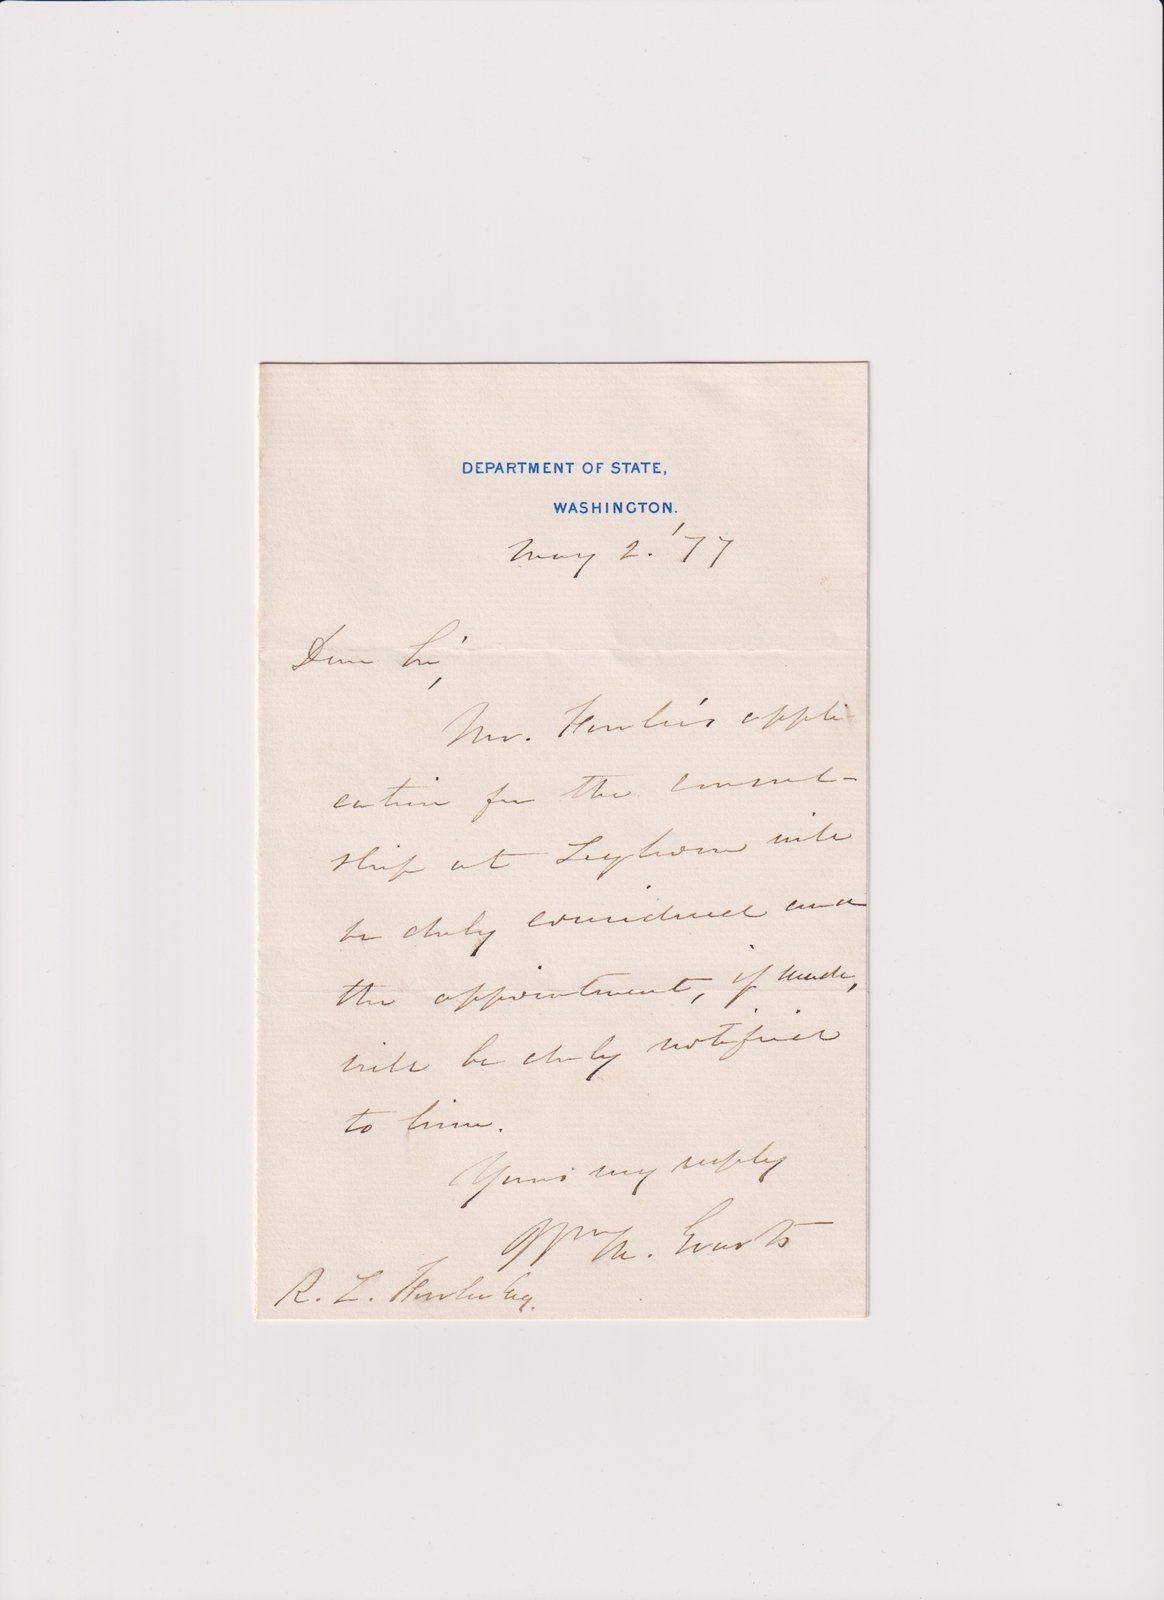 DEPARTMENT OF STATE,
WASHINGTON.
May 2. '77
Dear Sir,
Mr. Fowler's appli
cation for the consul-
ship at Leghorn will
be duly considered and
the appointment, if made,
will be duly notified
to him.
Yours very truly
Wm M. Evarts
R. L. Fowler Esq.